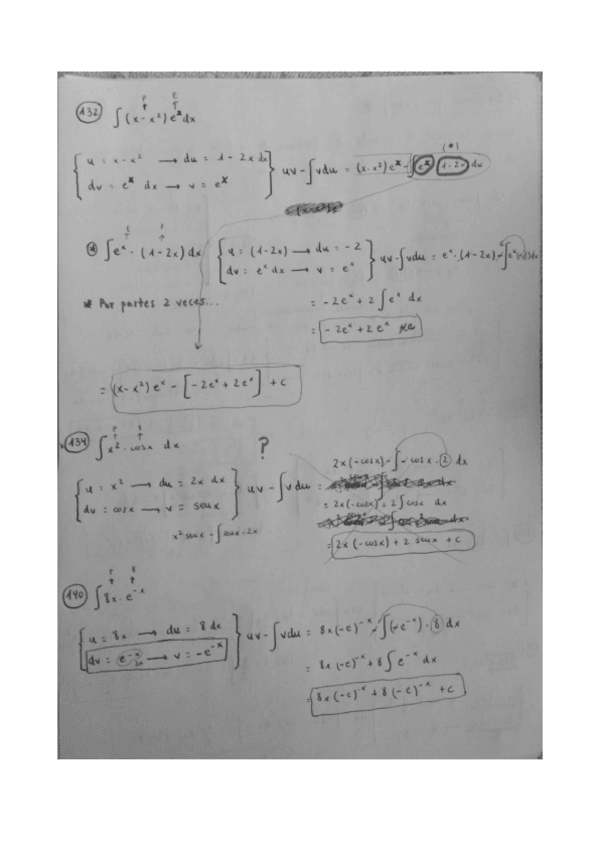 P E
132 ∫ (x - x²) eˣ dx
{ u = x - x² → du = 1 - 2x dx
dv = eˣ dx → v = eˣ } uv - ∫ v du = (x - x²) eˣ - ∫ eˣ (1 - 2x) dx
(*)
E P
(*) ∫ eˣ · (1 - 2x) dx { u = (1 - 2x) → du = -2
dv = eˣ dx → v = eˣ } uv - ∫ v du = eˣ · (1 - 2x) - ∫ eˣ
* Por partes 2 veces...
= -2eˣ + 2 ∫ eˣ dx
= -2eˣ + 2eˣ
= (x - x²) eˣ - [-2eˣ + 2eˣ] + c
134 ∫ x² · cosx dx ?
2x (-cosx) - ∫ -cosx · 2 dx
{ u = x² → du = 2x dx
dv = cosx → v = senx } uv - ∫ v du =
= 2x (-cosx) + 2 ∫ cosx dx
x² senx - ∫ senx · 2x
= 2x (-cosx) + 2 senx + c
P E
140 ∫ 8x · e⁻ˣ
{ u = 8x → du = 8 dx
dv = e⁻ˣ dx → v = -e⁻ˣ } uv - ∫ v du = 8x (-e)⁻ˣ - ∫ (-e⁻ˣ) · 8 dx
= 8x (-e)⁻ˣ + 8 ∫ e⁻ˣ dx
= 8x (-e)⁻ˣ + 8 (-e)⁻ˣ + c